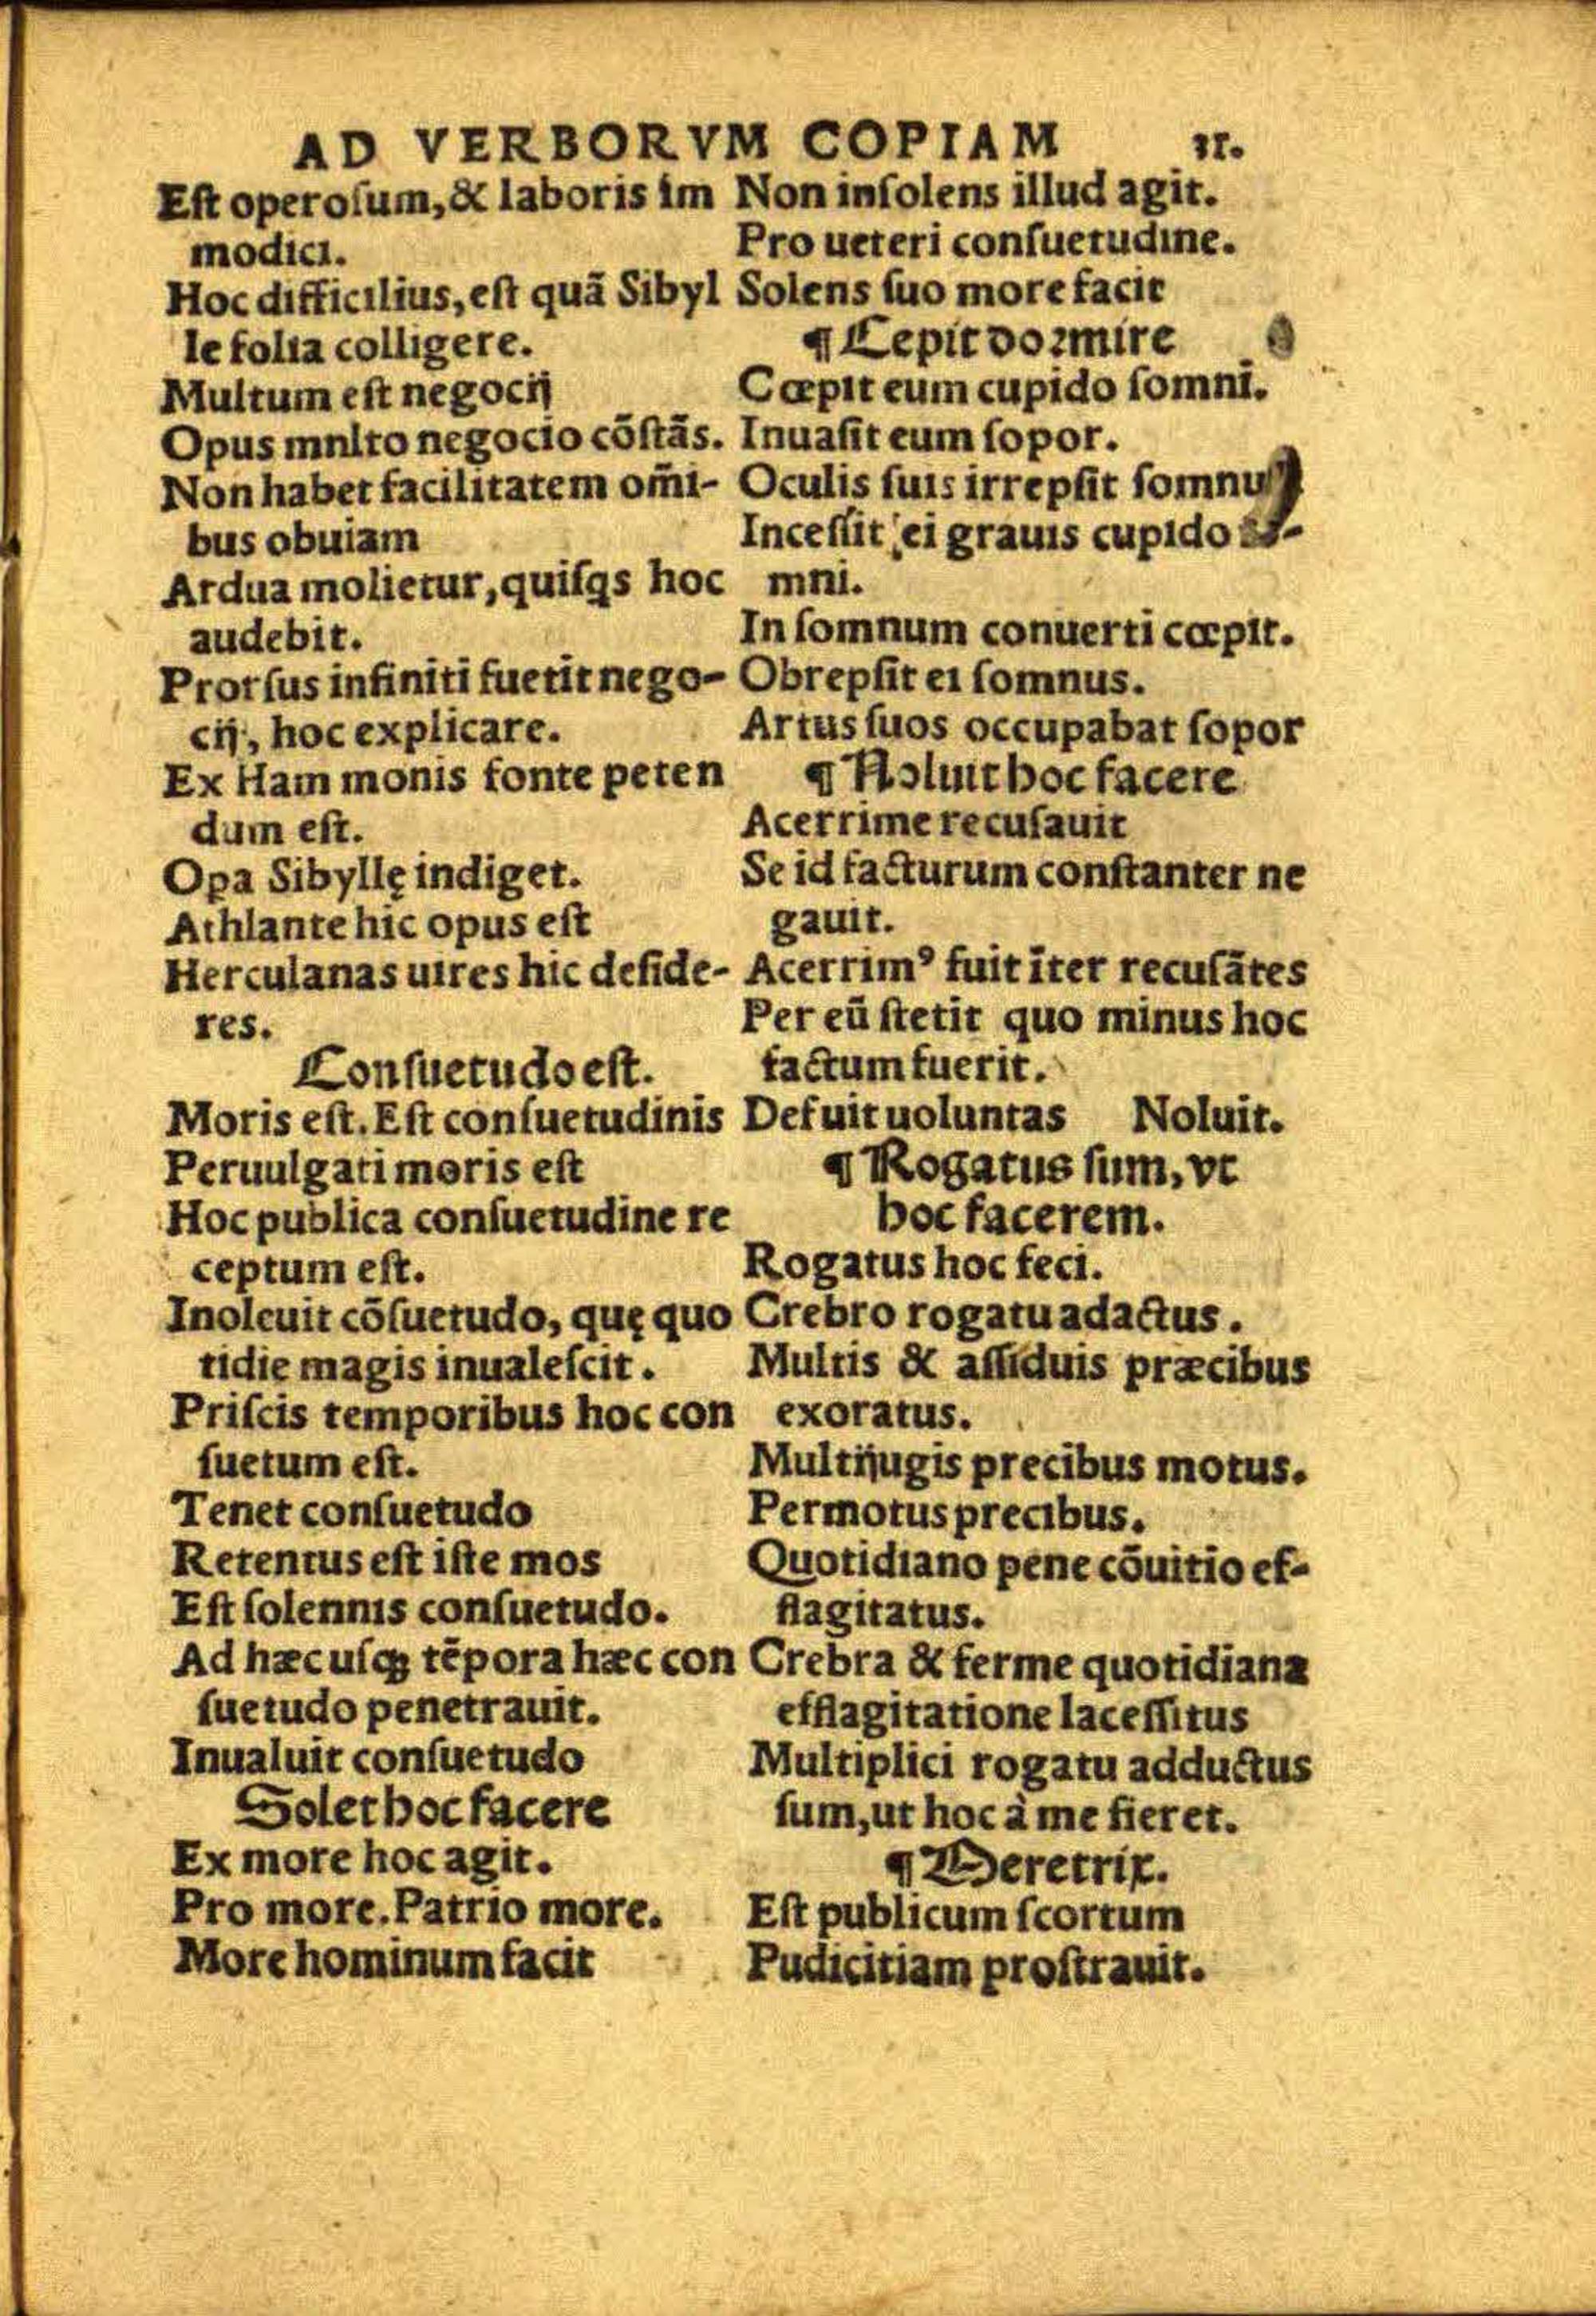 AD VERBORVM COPIAM 11.
Eſt operoſum, & laboris im
modici.
Hoc difficilius, eſt quā Sibyl
le folia colligere.
Multum eſt negocij
Opus mnlto negocio cōſtās.
Non habet facilitatem om̄i-
bus obuiam
Ardua molietur, quiſqs hoc
audebit.
Prorſus infiniti fuerit nego-
cij, hoc explicare.
Ex Ham monis fonte peten
dum eſt.
Oꝑa Sibyllę indiget.
Athlante hic opus eſt
Herculanas uires hic deſide-
res.
Conſuetudo eſt.
Moris eſt. Eſt conſuetudinis
Peruulgati moris eſt
Hoc publica conſuetudine re
ceptum eſt.
Inoleuit cōſuetudo, quę quo
tidie magis inualeſcit.
Priſcis temporibus hoc con
ſuetum eſt.
Tenet conſuetudo
Retentus eſt iſte mos
Eſt ſolennis conſuetudo.
Ad hæc uſqꝫ tēpora hæc con
ſuetudo penetrauit.
Inualuit conſuetudo
Solet hoc facere
Ex more hoc agit.
Pro more. Patrio more.
More hominum facit
Non inſolens illud agit.
Pro ueteri conſuetudine.
Solens ſuo more facit
¶ Cepit doꝛmire
Cœpit eum cupido ſomni.
Inuaſit eum ſopor.
Oculis ſuis irrepſit ſomnu
Inceſſit ei grauis cupido
mni.
In ſomnum conuerti cœpit.
Obrepſit ei ſomnus.
Artus ſuos occupabat ſopor
¶ Noluit hoc facere
Acerrime recuſauit
Se id facturum conſtanter ne
gauit.
Acerrimꝰ fuit īter recuſātes
Per eū ſtetit quo minus hoc
factum fuerit.
Defuit uoluntas Noluit.
¶ Rogatus ſum, vt
hoc facerem.
Rogatus hoc feci.
Crebro rogatu adactus.
Multis & aſſiduis præcibus
exoratus.
Multijugis precibus motus.
Permotus precibus.
Quotidiano pene cōuitio ef-
flagitatus.
Crebra & ferme quotidiana
efflagitatione laceſſitus
Multiplici rogatu adductus
ſum, ut hoc à me fieret.
¶ Meretrix.
Eſt publicum ſcortum
Pudicitiam proſtrauit.